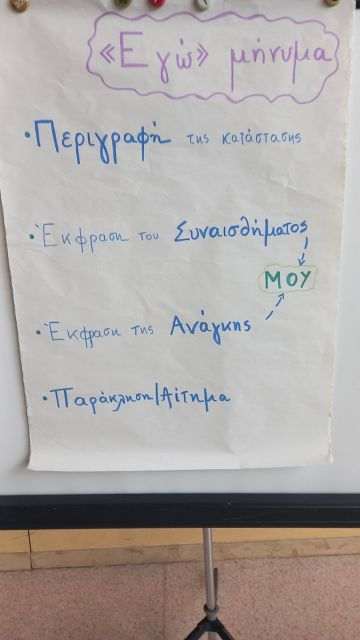 «Εγώ» μήνυμα
• Περιγραφή της κατάστασης
• Έκφραση του Συναισθήματος
ΜΟΥ
• Έκφραση της Ανάγκης
• Παράκληση/Αίτημα